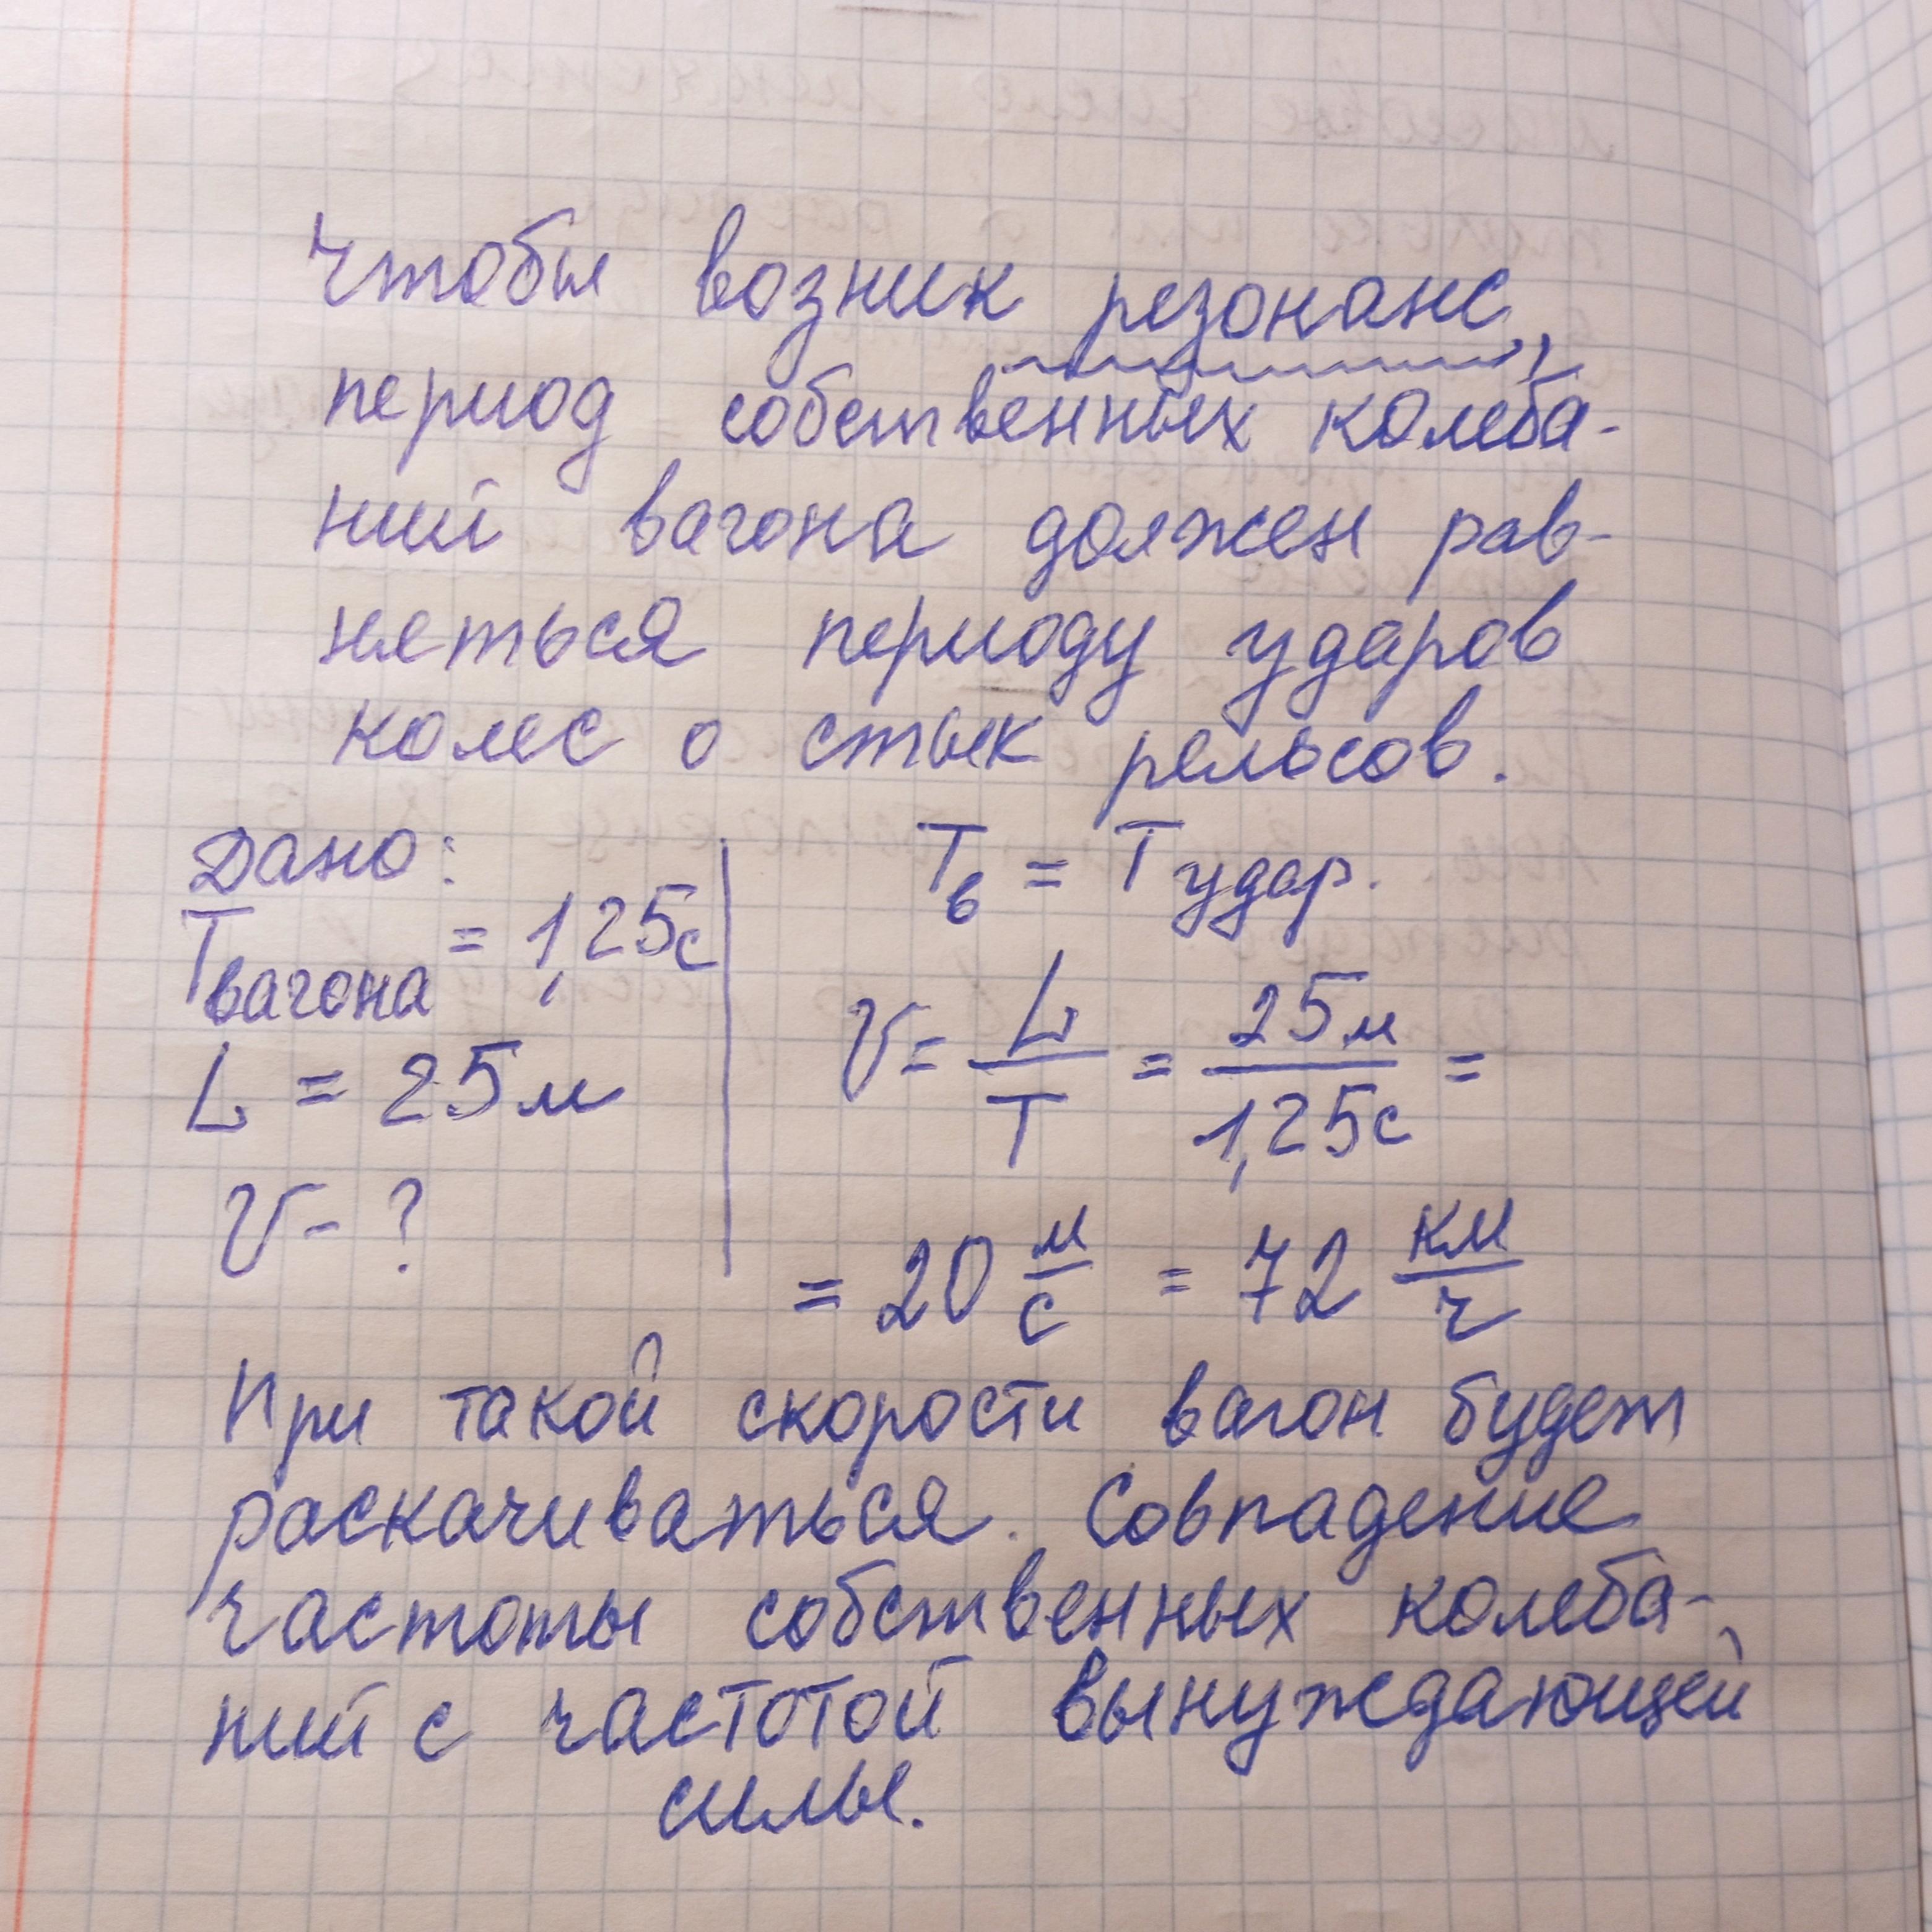 Чтобы возник резонанс,
период собственных колеба-
ний вагона должен рав-
няться периоду ударов
колес о стык рельсов.
Дано:
Tвагона = 1,25с
L = 25м
V - ?
Tв = Tудар.
V = L/T = 25м/1,25с =
= 20 м/с = 72 км/ч
При такой скорости вагон будет
раскачиваться. Совпадение
частоты собственных колеба-
ний с частотой вынуждающей
силы.